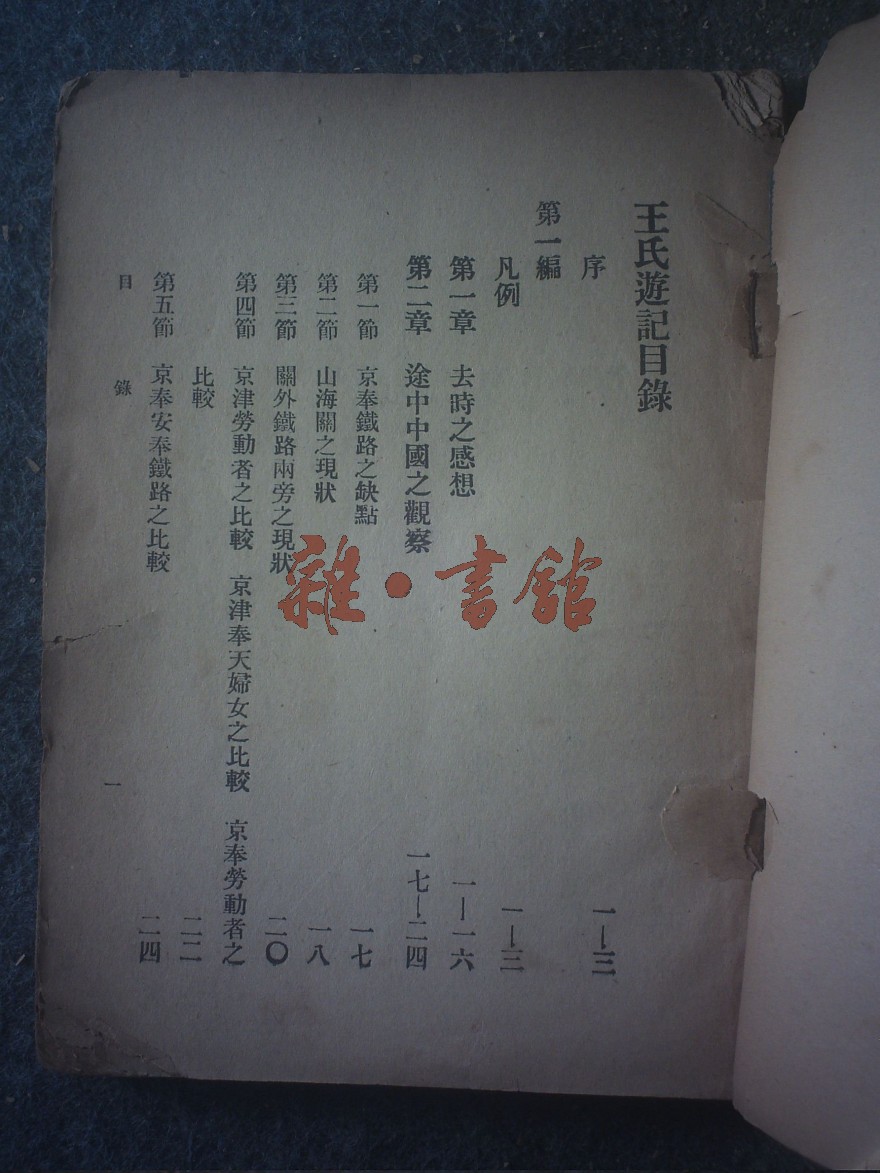 王氏遊記目錄
序 一—三
第一編
凡例 一—三
第一章 去時之感想 一—一六
第二章 途中中國之觀察 一七—二四
第一節 京奉鐵路之缺點 一七
第二節 山海關之現狀 一八
第三節 關外鐵路兩旁之現狀 二〇
第四節 京津勞動者之比較 京津奉天婦女之比較 京奉勞動者之
比較 二二
第五節 京奉安奉鐵路之比較 二四
目 錄 一
雜·書館